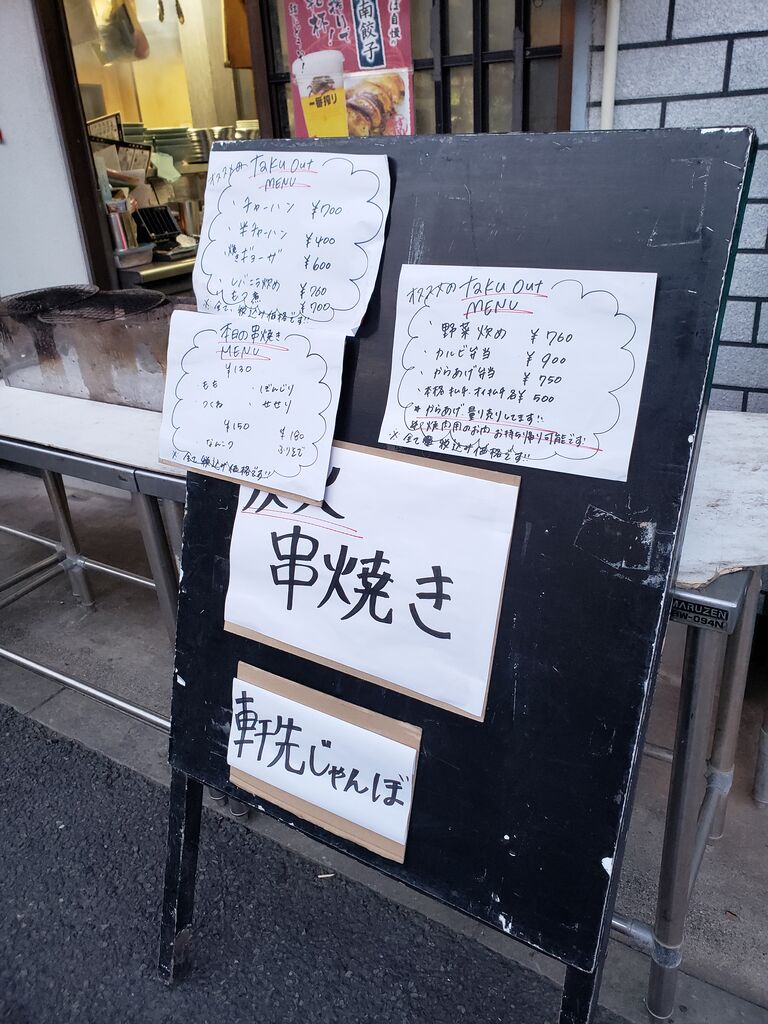 ば自慢の
南餃子
搾りで
乾杯!
一番搾り
オススメの Taku Out
MENU
・チャーハン ¥700
・半チャーハン ¥400
・焼きギョーザ ¥600
・レバニラ炒め ¥760
・もつ煮 ¥700
※全て、税込み価格です!!
本日の串焼き
MENU
¥130
・もも ・ぼんじり
・つくね ・せせり
¥150 ¥180
なんこつ ふりそで
※全て税込み価格です!!
オススメの Taku Out
MENU
・野菜炒め ¥760
・カルビ弁当 ¥900
・からあげ弁当 ¥750
・本格キムチ、オイキムチ各¥500
※からあげ量り売りしてます!!
焼肉用のお肉お持ち帰り可能です
※全て税込み価格です!!
炭火
串焼き
軒先じゃんぼ
MARUZEN
BW-094N